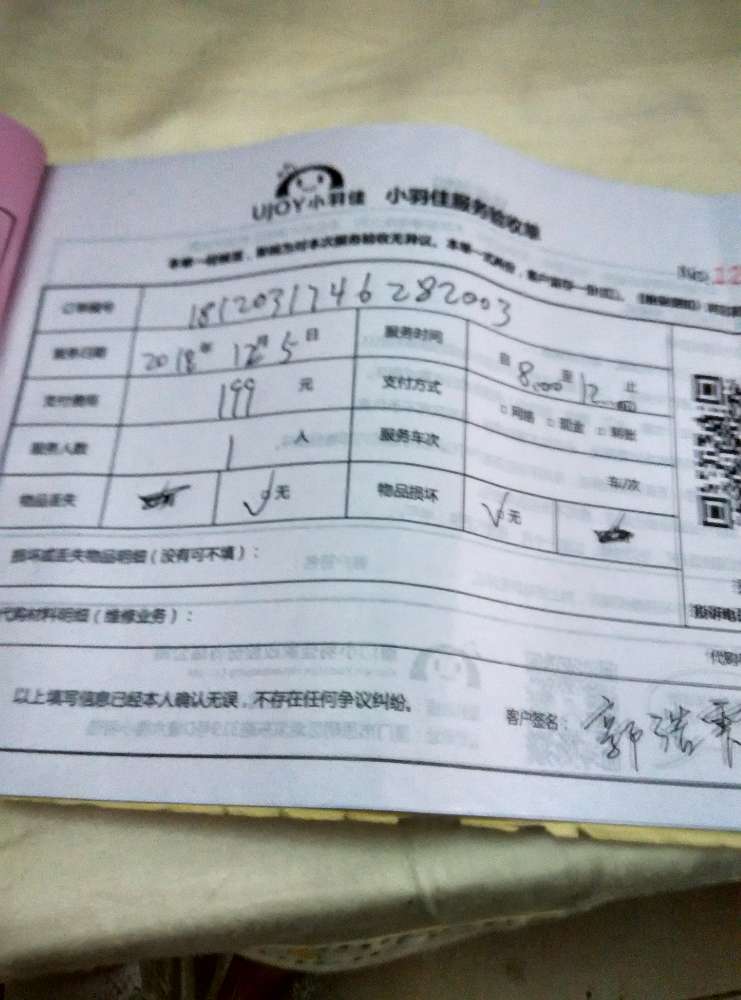 UJOY小羽佳 小羽佳服务验收单
NO.12
订单编号 1812031746282003
服务日期 2018年12月5日 服务时间 自8:00至12:00止
支付费用 199元 支付方式 □网络 □现金 □转账
服务人数 1人 服务车次 车/次
物品丢失 ☑无 物品损坏 ☑无
损坏或丢失物品明细（没有可不填）：
代购材料明细（维修业务）：
以上填写信息已经本人确认无误，不存在任何争议纠纷。
客户签名：郭浩